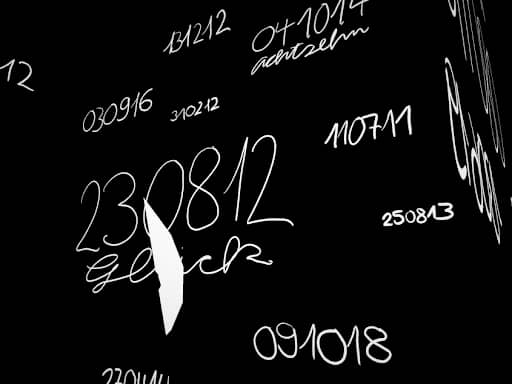 131212
041014
achtzehn
12
030916
310212
110711
230812
250813
091018